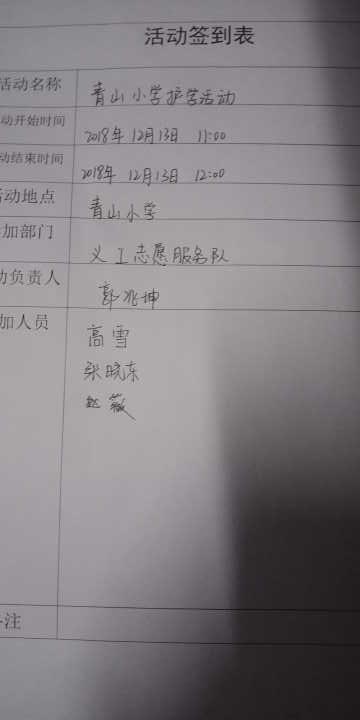 活动签到表
活动名称 青山小学护学活动
动开始时间 2018年12月13日 11:00
动结束时间 2018年12月13日 12:00
活动地点 青山小学
加部门 义工志愿服务队
动负责人 郭兆坤
加人员 高雪
张晓东
赵薇
注